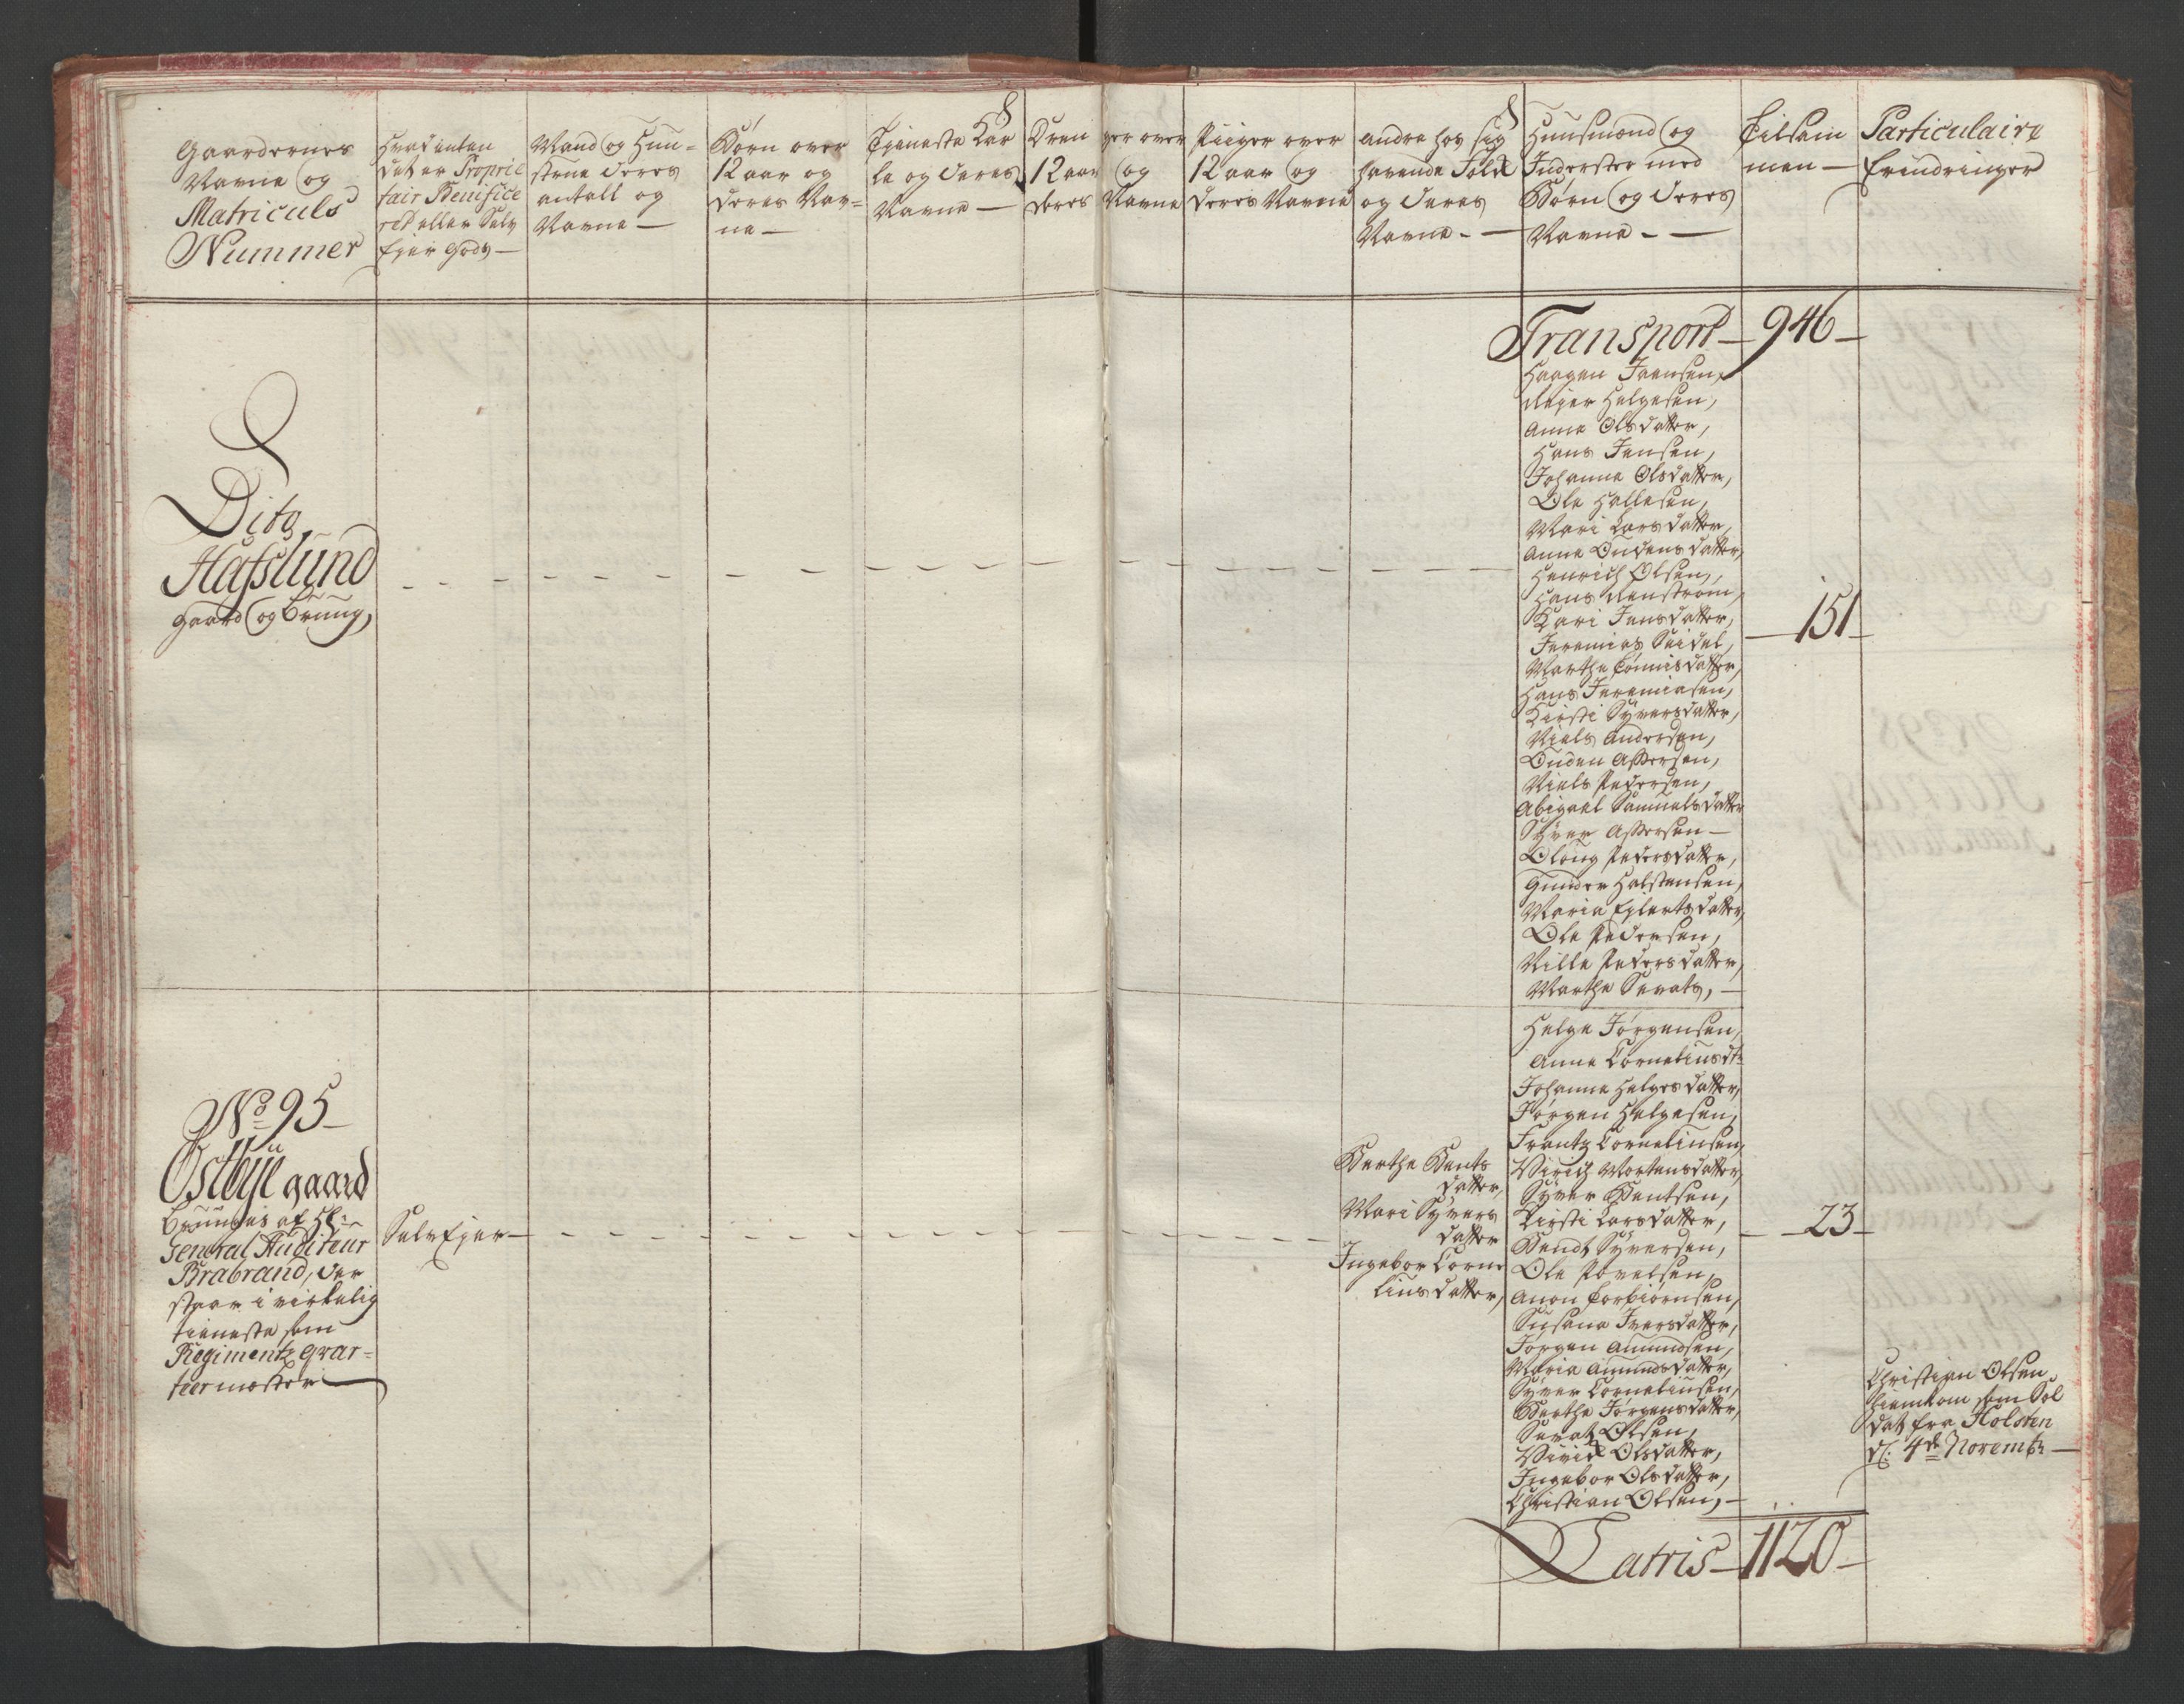 Gaardernes
Navne og
Matriculs
Nummer
Hvad enten
det er Proprie
tair Benifice
ret eller Selv
Ejer Gods —
Mand og Hu-
strue deres
antall og
Navne —
Børn over
12 aar og
deres Nav-
ne —
Tieneste Kar
le og deres
Navne —
Dren ger over
12 aar og
deres Navne
Piiger over
12 aar og
deres Navne
andre hos sig
havende Folk
og deres
Navne —
Huusmænd og
Inderster med
Børn og deres
Navne —
Tilsam
men —
Particulaire
Erindringer
Transport — 946 —
Dito
Hafslund
Gaard og Brung,
Haagen Iversen,
Helgesen,
Anne Olsdatter,
Hans Jensen,
Johanne Olsdatter,
Ole Hallesen,
Mari Larsdatter,
Anne Oudensdatter,
Henrich Olsen,
Hans
Kari Jensdatter,
Jeremias Seidel,
Marthe Tønnisdatter,
Hans Jeremiasen,
Kirsti Syversdatter,
Niels Andersen,
Ouden Assersen,
Niels Pedersen,
Abigael Samuelsdatter
Syver Assersen —
Oloug Pedersdatter,
Gunder Halstensen,
Maria Eylertsdatter,
Ole Pedersen,
Nille Pedersdatter,
Marthe Sevats, —
— 151 —
No 95 —
Østbye gaard
bruuges af Hr
General Auditeur
Brabrand, der
staar i virkelig
tieneste som
Regimentz Qvar-
teermester —
Selv Ejer —
Berthe Bents
datter,
Mari Syvers
datter
Ingebor Corne
liusdatter,
Helge Jørgensen,
Anne Corneliusdtr
Johanne Helgesdatter,
Jørgen Helgesen,
Frantz Corneliusen,
Mortensdatter,
Syver Bentsen,
Kirsti Larsdatter,
Bendt Syversen,
Ole Povelsen,
Anon Torbiørnsen,
Susana Iversdatter,
Jørgen Amundsen,
Maria Amundsdatter,
Syver Corneliusen,
Berthe Jørgensdatter,
Sevat Olsen,
Olsdatter,
Ingebor Olsdatter,
Christian Olsen, —
— 23 —
Christian Olsen
hiemkom som Sol
dat fra Holsten
d: 4de Novembr —
Latris — 1120 —